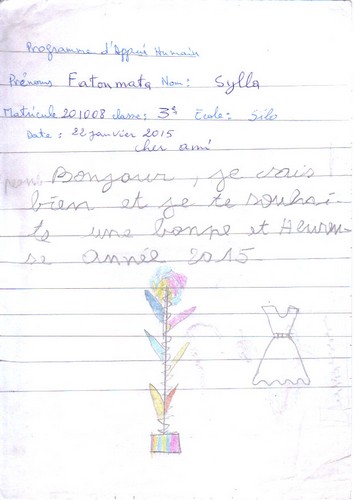 Programme d'Appui Humain
Prénoms Fatoumata Nom: Sylla
Matricule 201008 classe: 3è Ecole: Silo
Date: 22 janvier 2015
cher ami
Bonjour, je vais
bien et je te souhai-
te une bonne et Heureu-
se année 2015